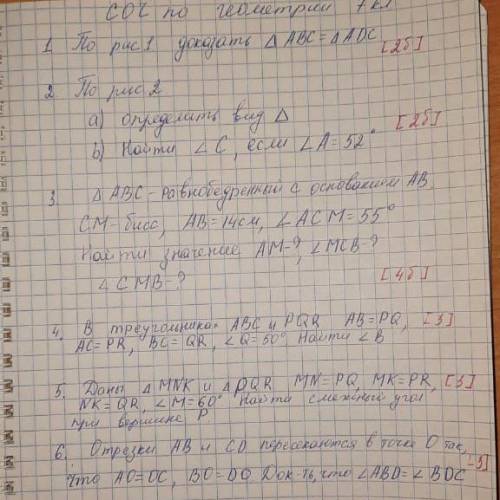 СОЧ по геометрии 7 кл
1 По рис 1 доказать △ ABC = △ ADC
[2б]
2 По рис 2
а) определить вид △
b) Найти ∠ C, если ∠ A = 52° [2б]
3. △ ABC - равнобедренный с основанием AB
CM - бисс, AB = 14см, ∠ ACM = 55°
Найти значение AM-? ∠ MCB-?
∠ CMB-? [4б]
4. В треугольниках ABC и PQR AB = PQ, [3]
AC = PR, BC = QR, ∠ Q = 50° Найти ∠ B
5. Даны △ MNK и △ PQR MN = PQ, MK = PR, [3]
NK = QR, ∠ M = 60° Найти смежный угол
при вершине P
6. Отрезки AB и CD пересекаются в точке O так,
что AO = OC, BO = DO Док-ть, что ∠ ABD = ∠ BDC